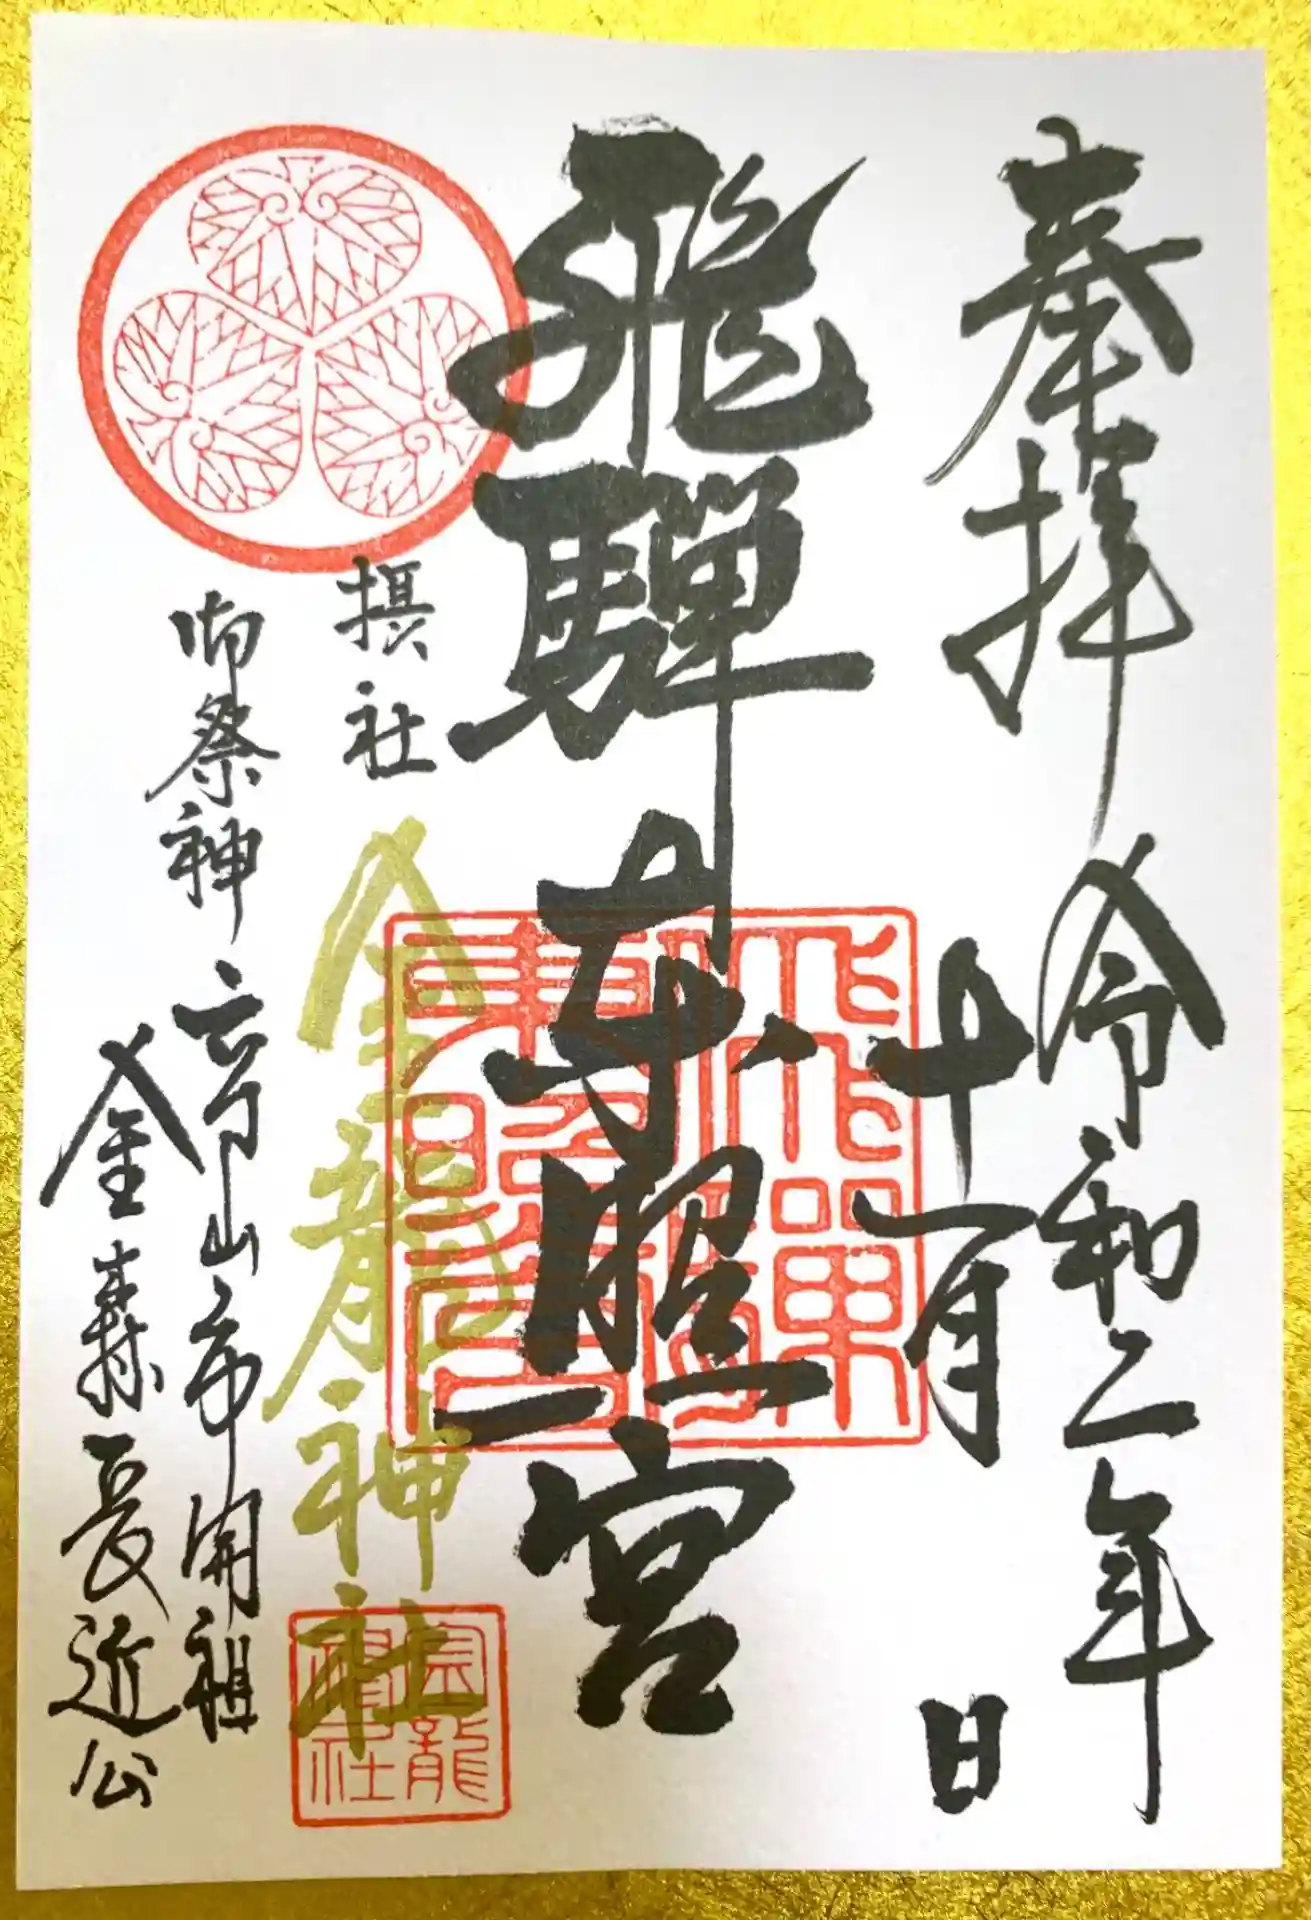 奉拝
令和二年
十一月 日
飛騨東照宮
飛騨
東照宮
摂社
金龍神社
金龍
神社
御祭神 高山市開祖
金森長近公